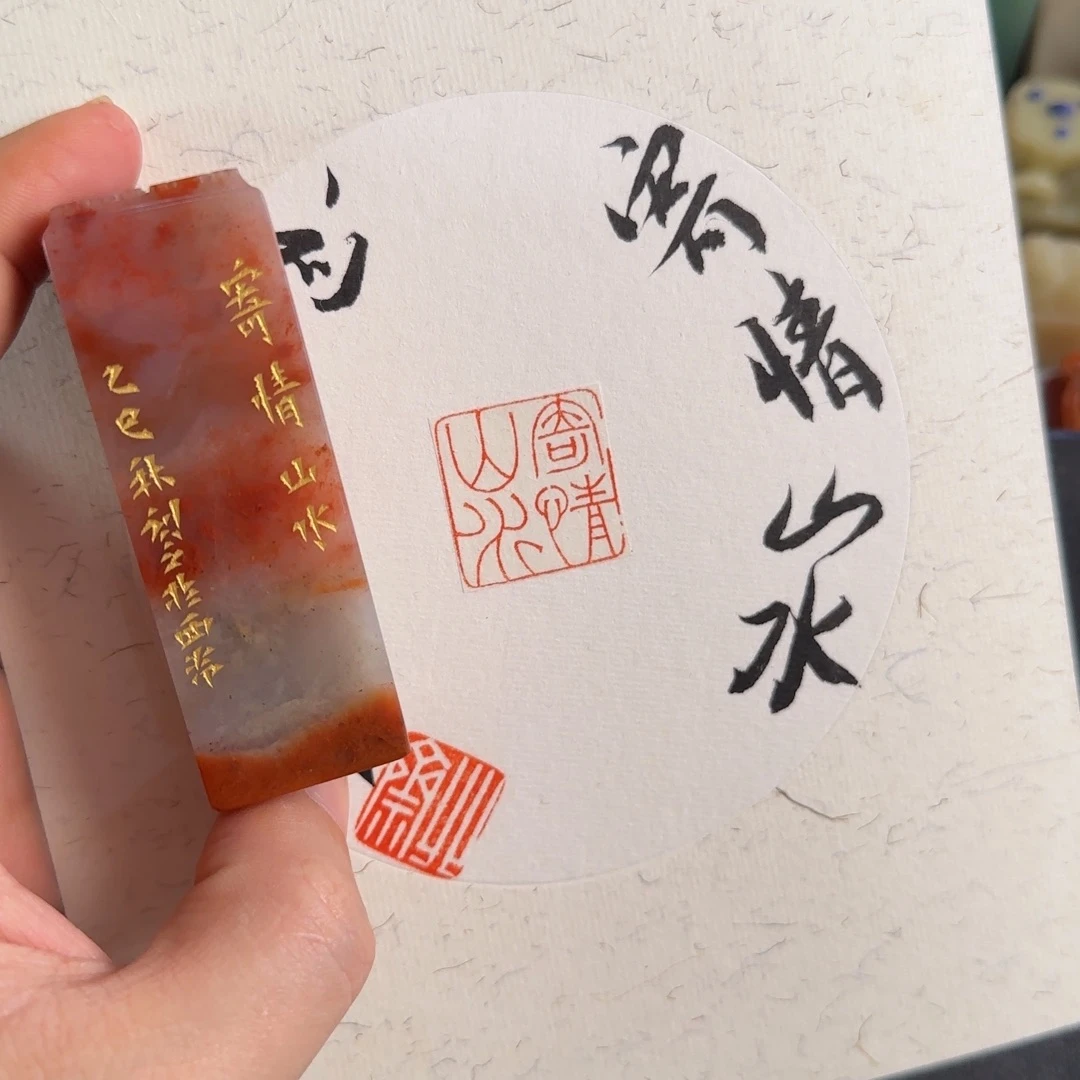 寄情山水
寄情山水
乙巳秋刻于西泠
寄情山水